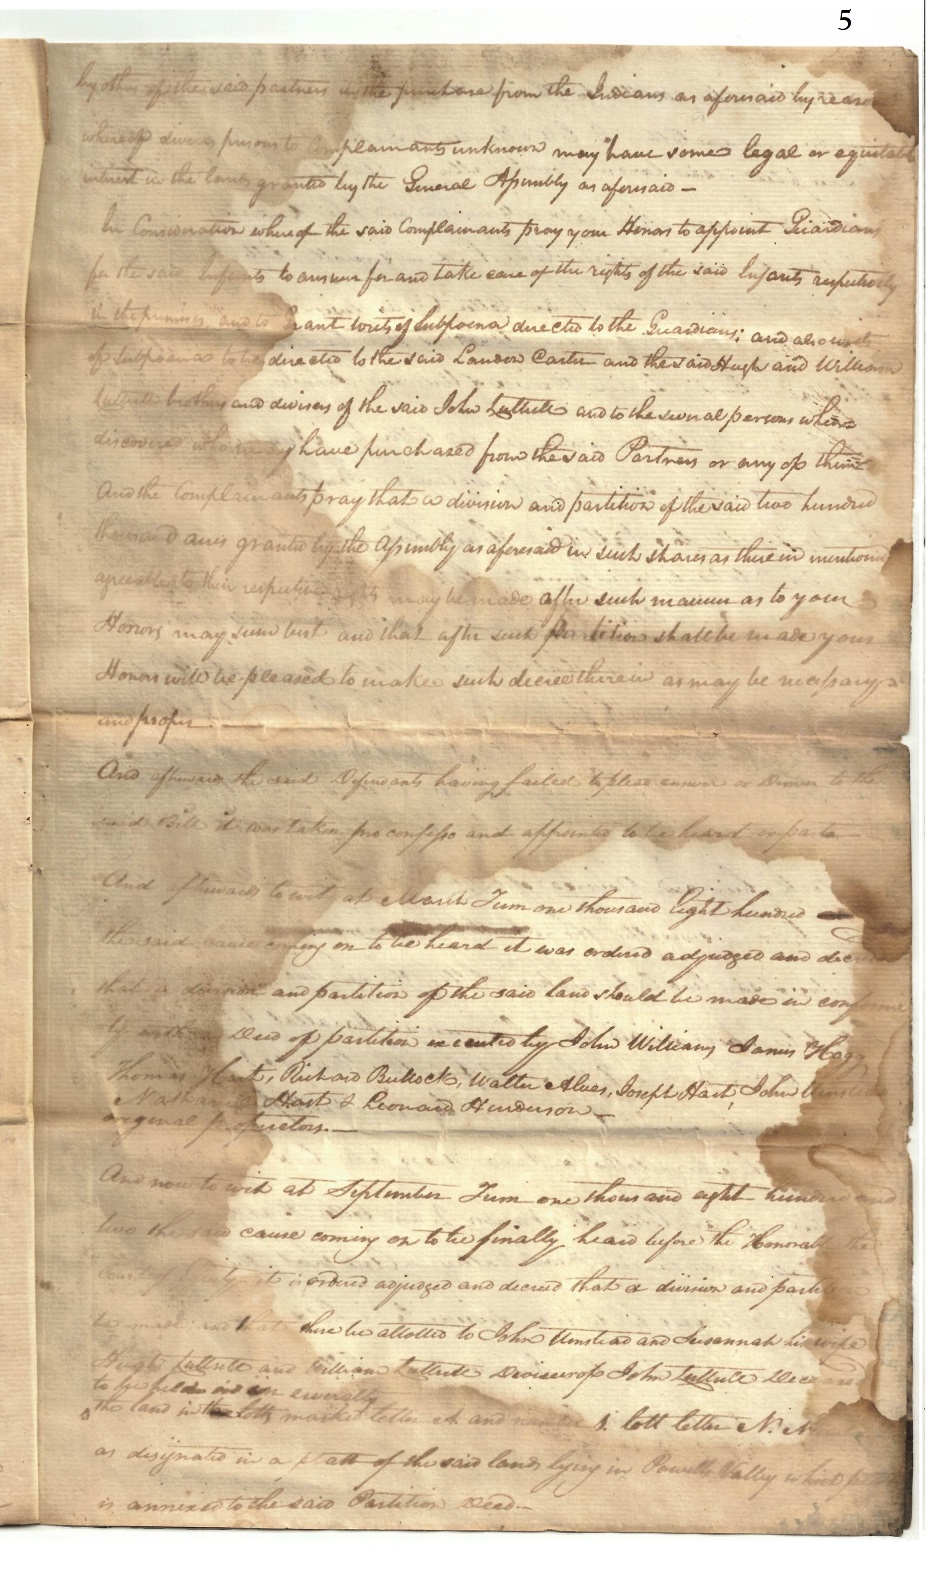 5
by other of the said partners in the purchase from the Indians as aforesaid by reason
whereof divers persons to Complainants unknown may have some legal or equitable
interest in the lands granted by the General Assembly as aforesaid —
In Consideration whereof the said Complainants pray your Honors to appoint Guardians
for the said Infants to answer for and take care of the rights of the said Infants respectively
in the premises, and to Grant writs of Subpoena directed to the Guardians; and also writs
of Subpoena to be directed to the said Landon Carter and the said Hugh and William
Luttrell brothers and divisees of the said John Luttrell and to the several persons when
discovered who may have purchased from the said Partners or any of them
And the Complainants pray that a division and partition of the said two hundred
thousand acres granted by the Assembly as aforesaid in such shares as therein mentioned
agreeable to their respective rights may be made after such manner as to your
Honors may seem best and that after such partition shall be made your
Honors will be pleased to make such decree therein as may be necessary
and proper —
And afterwards the said Defendants having failed to plead answer or Demur to the
said Bill it was taken pro confesso and appointed to be heard exparte —
And afterwards to wit, at March Term one thousand eight hundred
the said cause coming on to be heard it was ordered adjudged and decreed
that a division and partition of the said land should be made in
a Deed of partition executed by John Williams James Hogg
Thomas Hart, Richard Bullock, Walter Alves, Joseph Hart, John Umstead
Nathaniel Hart & Leonard Henderson —
original proprietors. —
And now to wit at September Term one thousand eight hundred and
two the said cause coming on to be finally heard before the Honorable the
Court of Equity it is ordered adjudged and decreed that a division and partition
be made and that there be allotted to John Umstead and Susannah his wife
Hugh Luttrell and William Luttrell Devisees of John Luttrell Deceased
to be held in severalty
the land in the lotts marked letter A and number 1. lott letter N. N
as designated in a platt of the said lands lying in Powells Valley which
is annexed to the said Partition Deed —